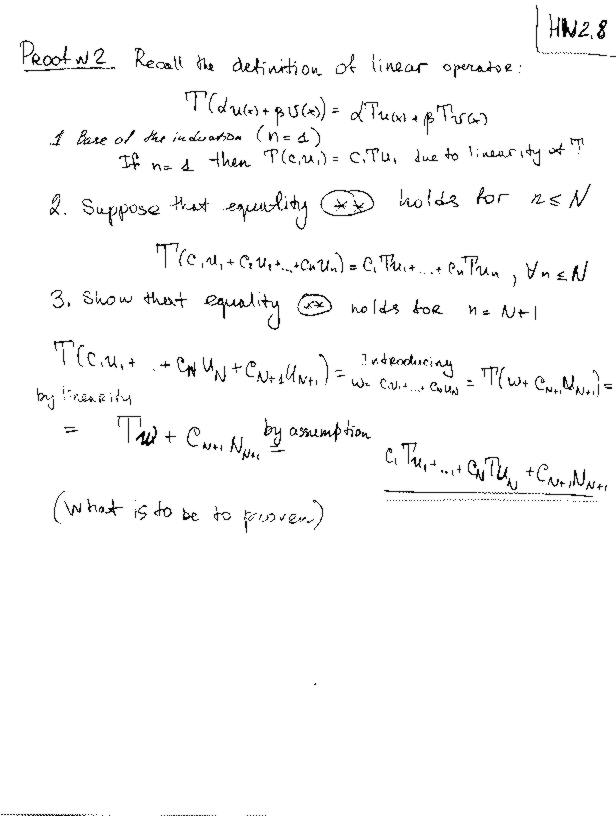 HW2.8
Proof N2 Recall the definition of linear operator:
T(αu(x) + βv(x)) = αTu(x) + βTv(x)
1 Base of the induction (n = 1)
If n = 1 then T(c₁u₁) = c₁Tu₁ due to linearity of T
2. Suppose that equality (**) holds for n ≤ N
T(c₁u₁ + c₂u₂ + ... + cₙuₙ) = c₁Tu₁ + ... + cₙTuₙ, ∀n ≤ N
3. Show that equality (**) holds for n = N+1
T(c₁u₁ + ... + c_N u_N + c_{N+1} u_{N+1}) = Introducing w = c₁u₁ + ... + c_N u_N = T(w + c_{N+1} u_{N+1}) =
by linearity
= Tw + C_{N+1} N_{N+1} by assumption =
c₁Tu₁ + ... + c_N Tu_N + C_{N+1} N_{N+1}
(What is to be to proven)